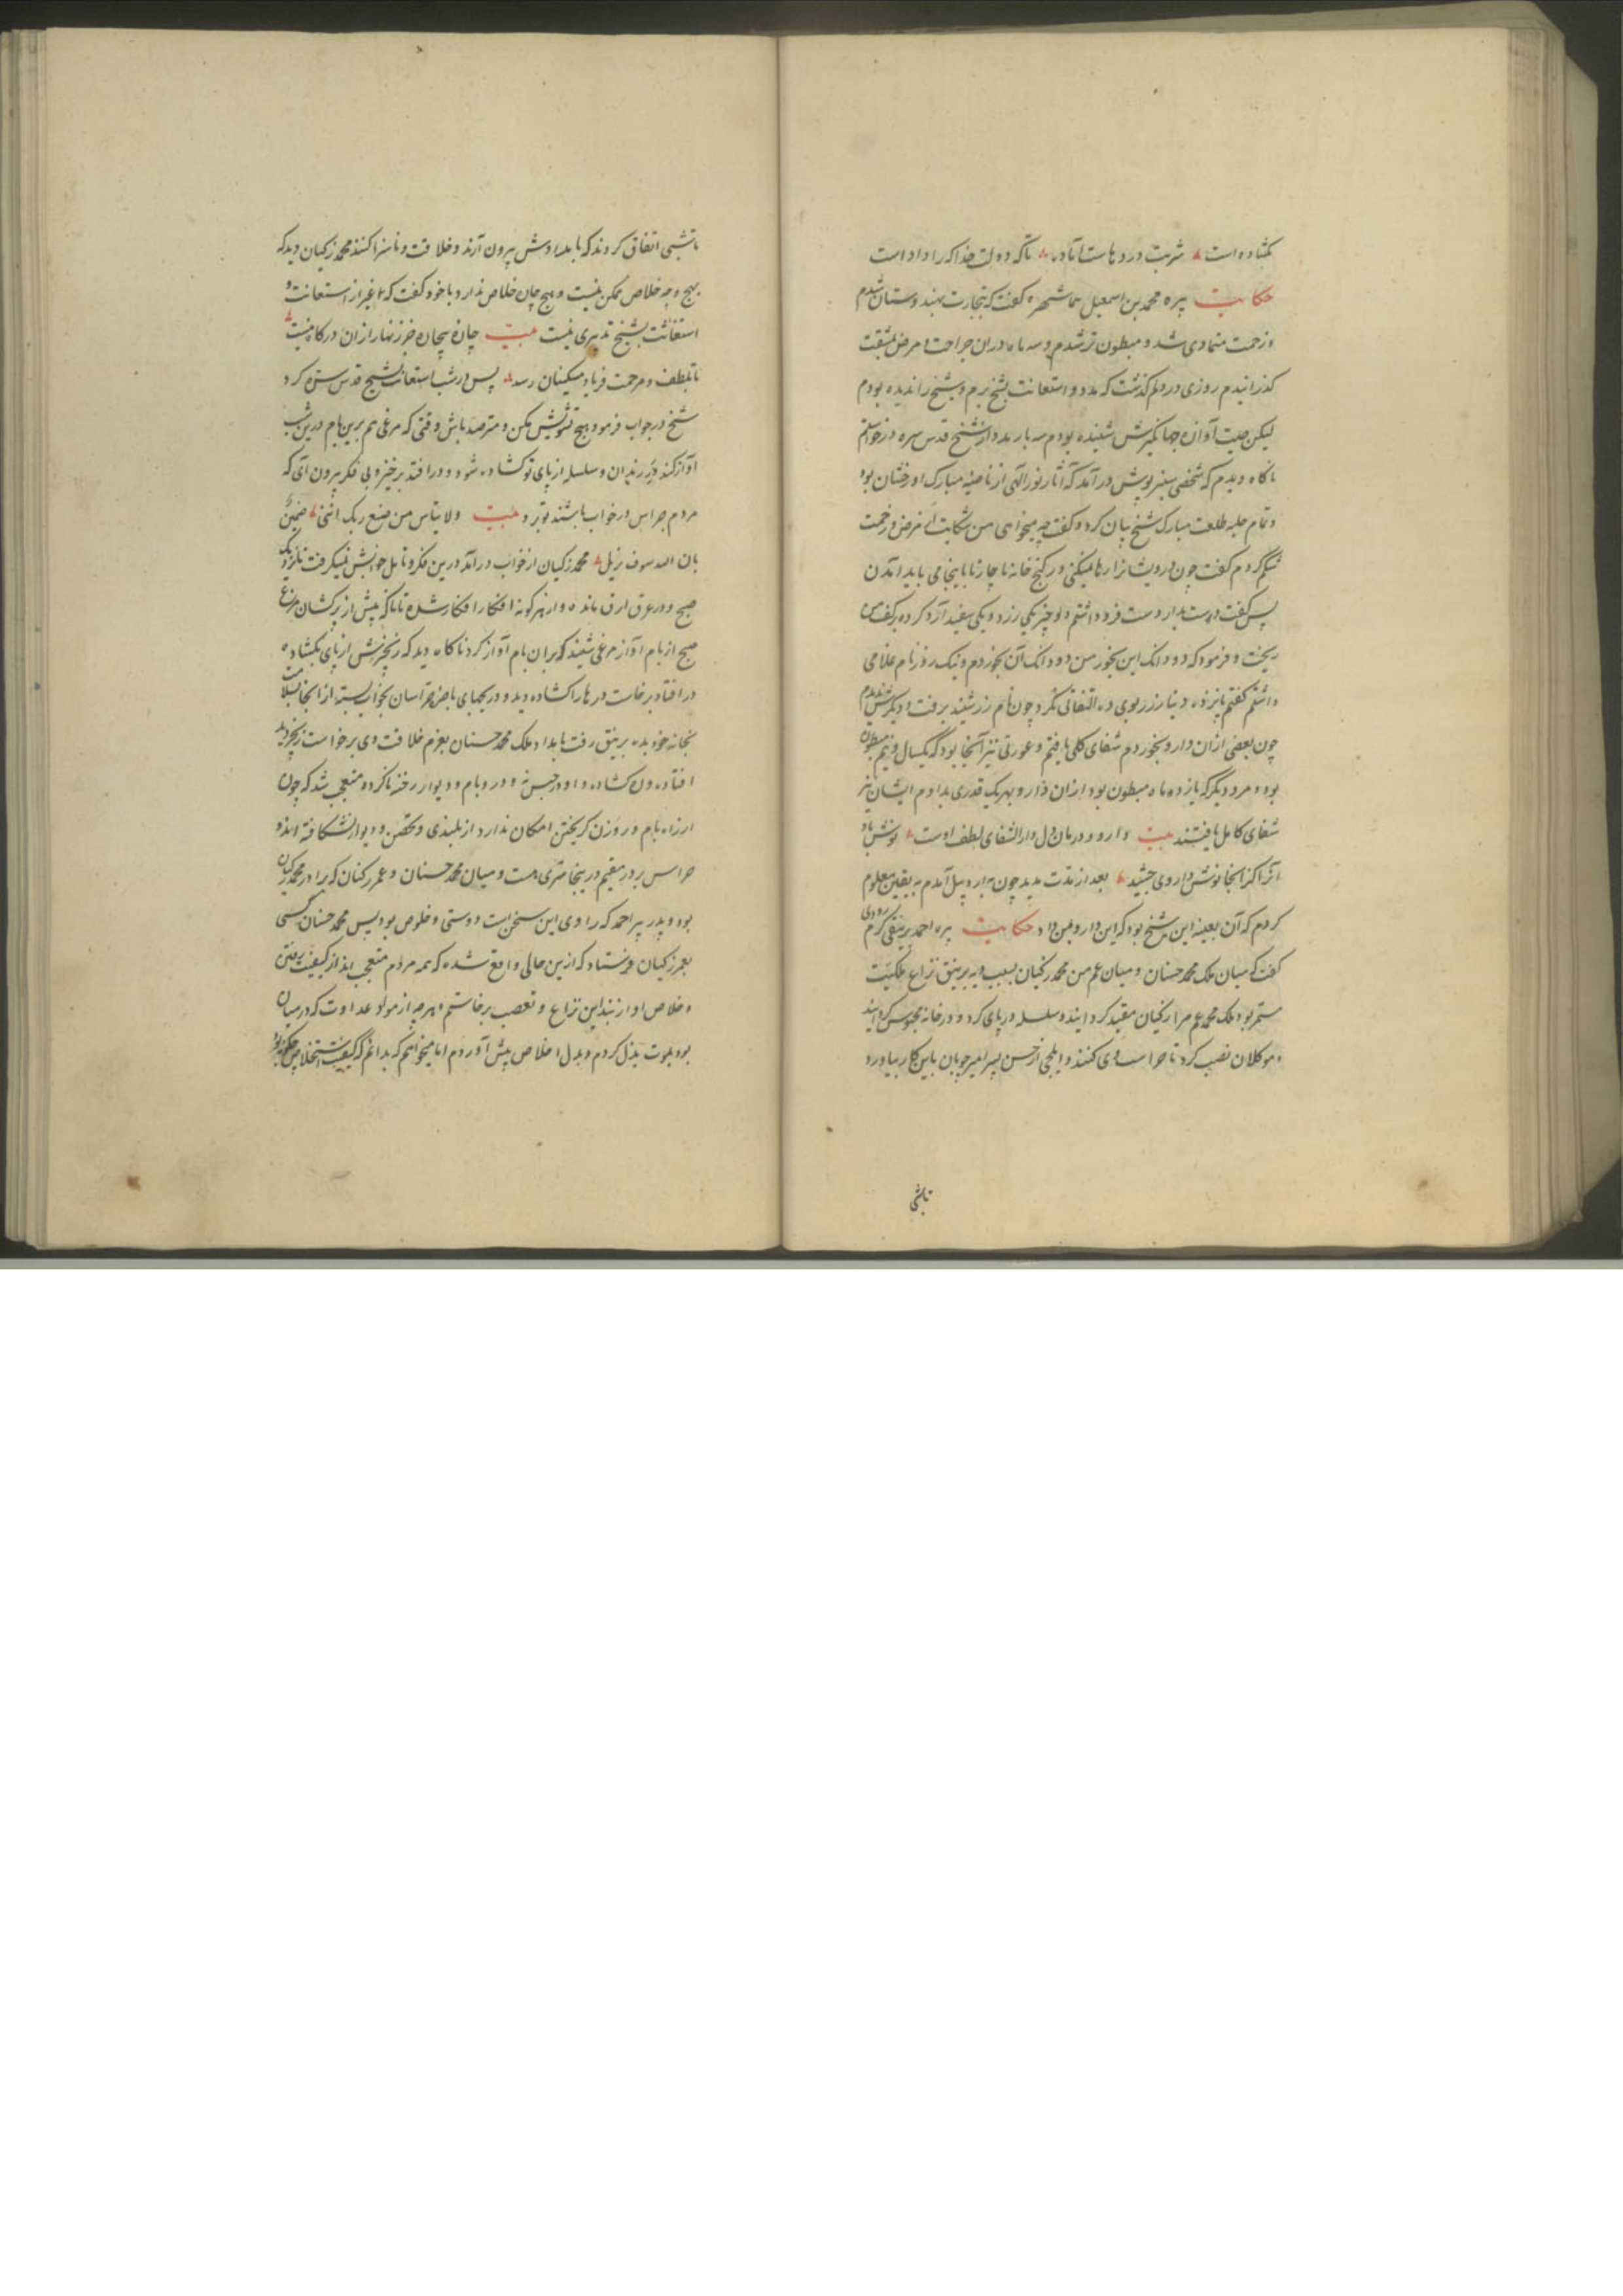 بگشاده است شربت درد هاست آماده تا که دولت خدا کرا داد است
حکایت پیره محمد بن اسمعیل سما شهره گفت که بتجارت بهندوستان شدم
و زحمت متمادی شد و مبطون تر شدم و سه ماه دران جراحت و مرض بمشقت
گذرانیدم روزی در دلم گذشت که مدد و استعانت بشیخ برم و شیخ را ندیده بودم
لیکن صیت آوازه جهانگیرش شنیده بودم سه بار مدد از شیخ قدس سره درخواستم
ناگاه دیدم که شخصی سبز پوش در آمد که آثار نور الهی از ناصیه مبارک او رخشان بود
و تمام حلیه طلعت مبارک شیخ بیان کرد و گفت چه میخواهی من شکایت از مرض و زحمت
شکم کردم گفت چون درویشانرا رها میکنی در کنج خانه ناچار تا باینجا می باید آمدن
پس گفت دست بدار دست فرو داشتم دو چیز یکی زرد و یکی سفید آرد کرده بر کف من
ریخت و فرمود که دو دانک این بخور من دو دانک آن بخوردم و نیک روز نام غلامی
داشتم گفتم پانزده دینار زر بوی ده التفاتی نکرد چون نام زر شنید برفت و دیگرش ندیدم
چون بعضی ازان دارو بخوردم شفای کلی یافتم و عورتی نیز آنجا بود که یکسال و نیم مبطون
بود و مرد دیگر که یازده ماه مبطون بود ازان دارو بهر یک قدری بدادم ایشان نیز
شفای کامل یافتند بیت دارو و درمان دل دار الشفای لطف اوست نوشش باد
آنرا کز آنجا نوش داروی چشید بعد از مدت مدید چون به اردبیل آمدم به یقین معلوم
کردم که آن بعینه این شیخ بود که این دارو بمن داد حکایت پیره احمد برینقی کرم رودی
گفت که میان ملک محمد حسنان و میان عم من محمد زکیان بسبب دیه برینق نزاع ملکیت
مستمر بود ملک محمد عم مرا زکیان مقید گردانید و سلسله در پای کرد و در خانه محبوس گردانید
و موکلان نصب کرد تا حراست وی کنند و ایلچی از حسن پسر امیر چوپان باین کار بیاورد
تا شبی
تا شبی اتفاق کردند که بامدادش بیرون آرند و خلاقت و ناسزا کنند محمد زکیان دید که
بهیچ وجه خلاص ممکن نیست و هیچ چاره خلاص ندارد با خود گفت که غیر از استعانت و
استغاثت بشیخ تدبیری نیست بیت چاره بیچاره جز زنهار ازان درگاه نیست
تا بلطف و مرحمت فریاد مسکینان رسد پس در شب استعانت بشیخ قدس سره کرد
شیخ در جواب فرمود هیچ تشویش مکن و مترصد باش وقتی که مرغی هم برین بام درین شب
آواز کند در زندان و سلسله از پای تو گشاده شود و در افتد برخیز و بی فکر بیرون آی که
مردم حراس در خواب باشند تو برو بیت ولا تیأس من صنع ربک اننی ضمین
بان الله سوف یزیل محمد زکیان از خواب در آمد درین فکر و تامل خوابش نمیگرفت تا نزدیک
صبح و در عرق ارق مانده و از هر گونه افکار افکار شده تا ناگه پیش از پر کشان مرغ
صبح از بام آواز مرغی شنید که بران بام آواز کرد ناگاه دید که زنجیرش از پای بگشاد و
در افتاد برخاست درها را گشاده دید و دریچهای باصره حراسان بخواب بسته از آنجا بسلامت
بخانه خود بدیه برینق رفت بامداد ملک محمد حسنان بعزم خلاقت وی برخواست زنجیر دید
افتاده و در گشاده و او در حبس نه و در و بام و دیوار رخنه ناکرده متعجب شد که چون
از راه بام و روزن گریختن امکان ندارد از بلندی و تحصن و دیوار نشکافته اند و
حراس بر در مقیم درینجا سری هست و میان محمد حسنان و عمر زکیان که برادر محمد زکیان
بود و پدر پیر احمد که راوی این سخن است دوستی و خلوص بود پس محمد حسنان کسی
بعمر زکیان فرستاد که ازین حالی واقع شده که همه مردم متعجب اند از کیفیت رفتن
و خلاص او از بند این نزاع و تعصب برخاستم و هر چه از مواد عداوت که در میان
بود بموت بدل کردم و بدل اخلاص پیش آوردم اما میخواهم که بدانم که کیفیت استخلاص چگونه بود